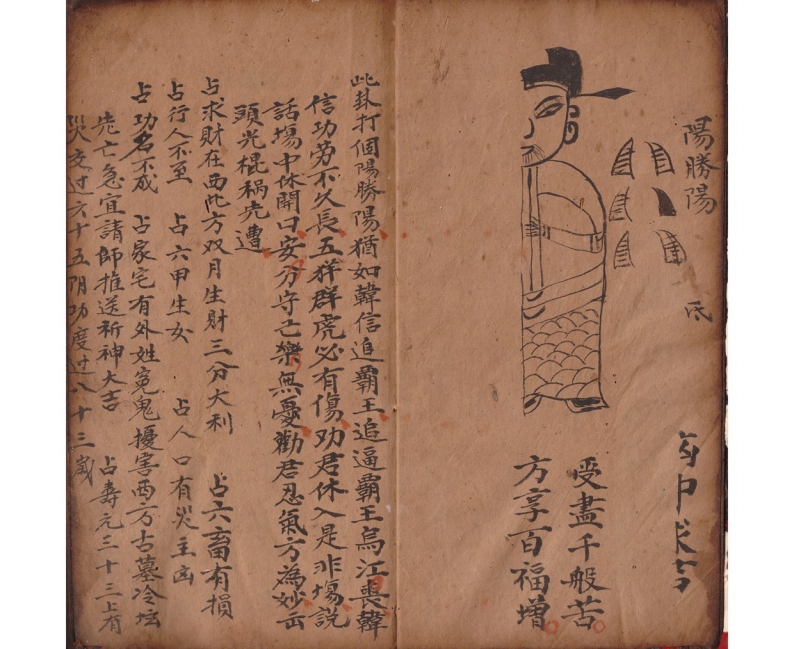 陽勝陽
受盡千般苦
方享百福增
此卦打個陽勝陽猶如韓信追霸王追逼霸王烏江喪韓
信功劳不久長五羊群虎必有傷劝君休入是非塲說
話塲中休開口安分守己樂無憂勸君忍氣方為妙出
頭光棍祸先遭
占求財在西北方双月生財三分大利 占六畜有損
占行人不至 占六甲生女 占人口有災主凶
占功名不成 占家宅有外姓冤鬼擾害西方古墓冷坛
先亡急宜請師推送祈神大吉 占壽元三十三上有
災交过六十五阴功度过八十三歲